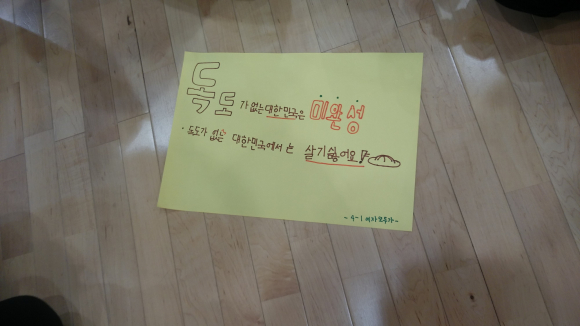 독도가 없는 대한민국은 미완성
· 독도가 없는 대한민국에서는 살기 싫어요!
~4-1 여자모두가~